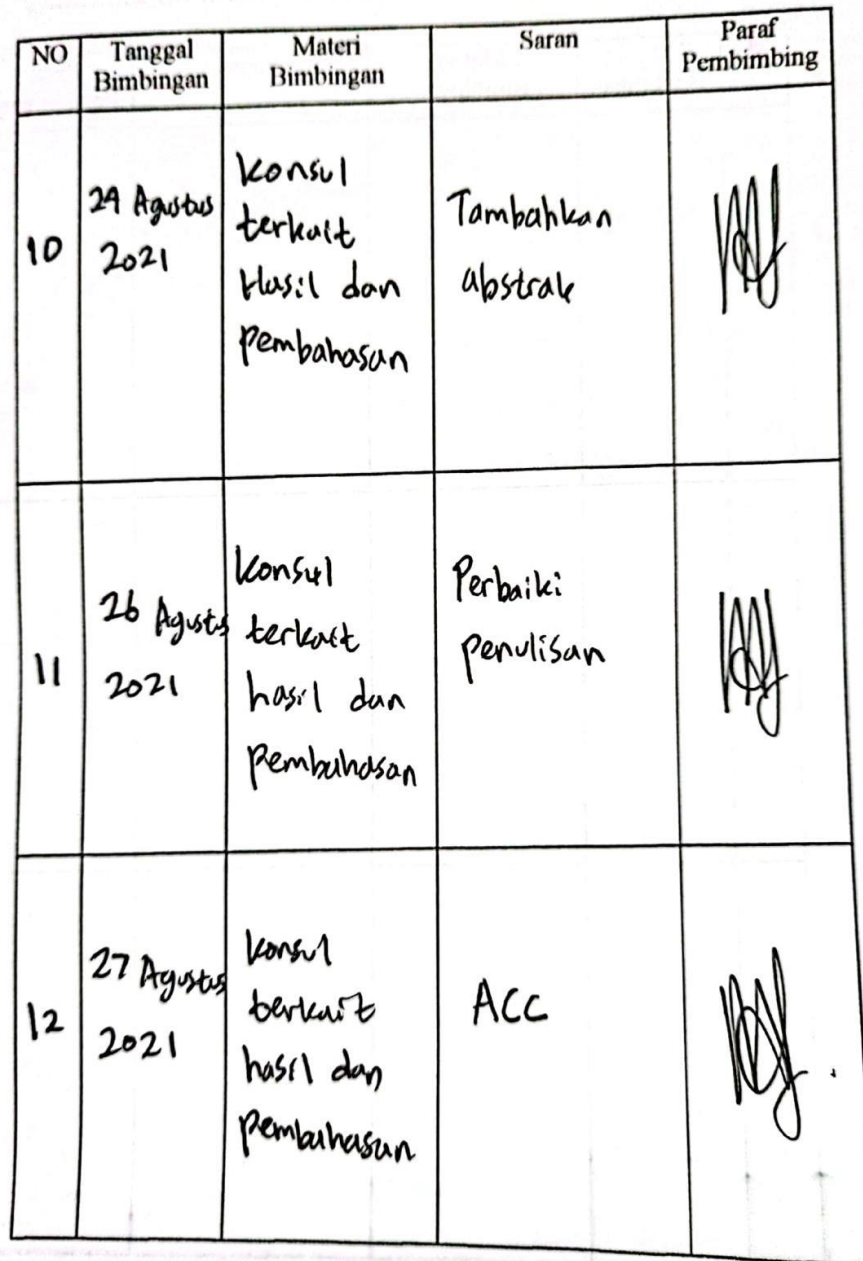 NO
Tanggal
Bimbingan
Materi
Bimbingan
Saran
Paraf
Pembimbing
10
24 Agustus
2021
Konsul
terkait
Hasil dan
pembahasan
Tambahkan
abstrak
11
26 Agustus
2021
Konsul
terkait
hasil dan
pembahasan
Perbaiki
penulisan
12
27 Agustus
2021
Konsul
terkait
hasil dan
pembahasan
ACC